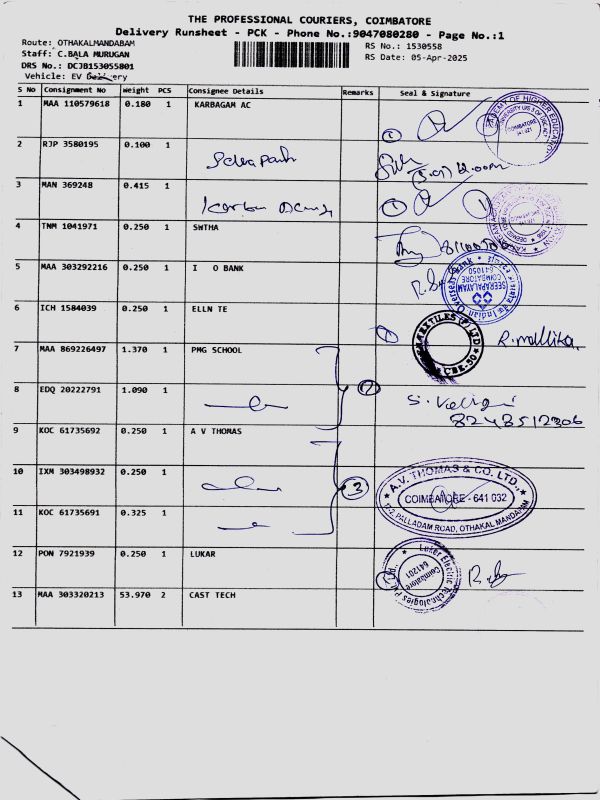 THE PROFESSIONAL COURIERS, COIMBATORE
Delivery Runsheet - PCK - Phone No.:9047080280 - Page No.:1
Route: OTHAKALMANDABAM
RS No.: 1530558
Staff: C.BALA MURUGAN
RS Date: 05-Apr-2025
DRS No.: DCJB153055801
Vehicle: EV Delivery
S No Consignment No Weight PCS Consignee Details Remarks Seal & Signature
1 MAA 110579618 0.180 1 KARBAGAM AC
2 RJP 3580195 0.100 1
3 MAN 369248 0.415 1
4 TNM 1041971 0.250 1 SWTHA
5 MAA 303292216 0.250 1 I O BANK
SEERAPALAYAM
COIMBATORE
641050
6 ICH 1584039 0.250 1 ELLN TE
R. mallika.
7 MAA 869226497 1.370 1 PMG SCHOOL
8 EDQ 20222791 1.090 1
2
8248512306
9 KOC 61735692 0.250 1 A V THOMAS
10 IXM 303498932 0.250 1
3
A.V. THOMAS & CO. LTD.,
COIMBATORE - 641 032
PALLADAM ROAD, OTHAKAL MANDAPAM
11 KOC 61735691 0.325 1
12 PON 7921939 0.250 1 LUKAR
Luker Electric Technologies
Coimbatore
641201
13 MAA 303320213 53.970 2 CAST TECH